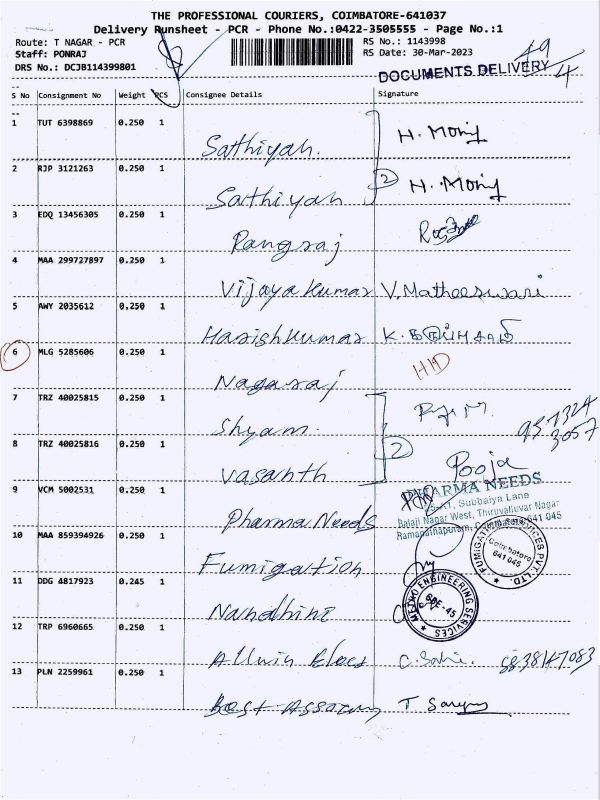 THE PROFESSIONAL COURIERS, COIMBATORE-641037
Delivery Runsheet - PCR - Phone No.:0422-3505555 - Page No.:1
Route: T NAGAR - PCR
RS No.: 1143998
Staff: PONRAJ
RS Date: 30-Mar-2023
DRS No.: DCJB114399801
DOCUMENTS DELIVERY 49/4
S No Consignment No Weight PCS Consignee Details Signature
1 TUT 6398869 0.250 1
Sathiyah. H. Moni
2 RJP 3121263 0.250 1
2
Sathiyah H. Moni
3 EDQ 13456305 0.250 1
Rangraj
4 MAA 299727897 0.250 1
Vijayakumar V. Matheeswari
5 AWY 2035612 0.250 1
Harishkumar K.
6 MLG 5285606 0.250 1
HD
Nagaraj
7 TRZ 40025815 0.250 1
Shyam. 951324
3057
8 TRZ 40025816 0.250 1
2
Vasanth Pooja
9 VCM 5002531 0.250 1
PHARMA NEEDS
Subbaiya Lane
Balaji Nagar West, Thiruvalluvar Nagar
Pharma Needs Ramanathapuram, 641 045
10 MAA 859394926 0.250 1
FUMIGATION SERVICES PVT. LTD.
Coimbatore
641 045
Fumigation
11 DDG 4817923 0.245 1
METRO ENGINEERING SERVICES
CBE-45
Nandhini
12 TRP 6960665 0.250 1
Allwin Elecs C. Sahi.
13 PLN 2259961 0.250 1
Best